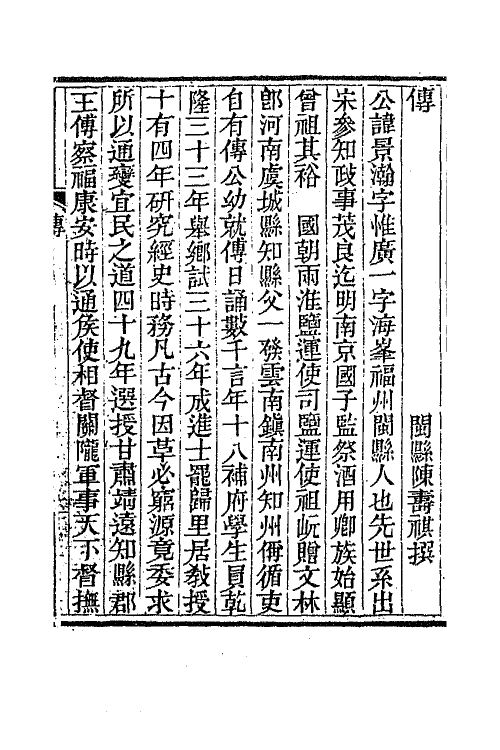 傳　　　　　　　　閩縣陳壽祺撰
公諱景瀚字惟廣一字海峯福州閩縣人也先世系出
宋參知政事茂良迄明南京國子監祭酒用卿族始顯
曾祖其裕　國朝兩淮鹽運使司鹽運使祖岏贈文林
郎河南虞城縣知縣父一發雲南鎮南州知州循吏
自有傳公幼就傅日誦數千言年十八補府學生員乾
隆三十三年舉鄉試三十六年成進士罷歸里居敎授
十有四年研究經史時務凡古今因革必窮源竟委求
所以通變宜民之道四十九年選授甘肅靖遠知縣郡
王傅察福康安時以通侯使相督關隴軍事天下督撫
傳